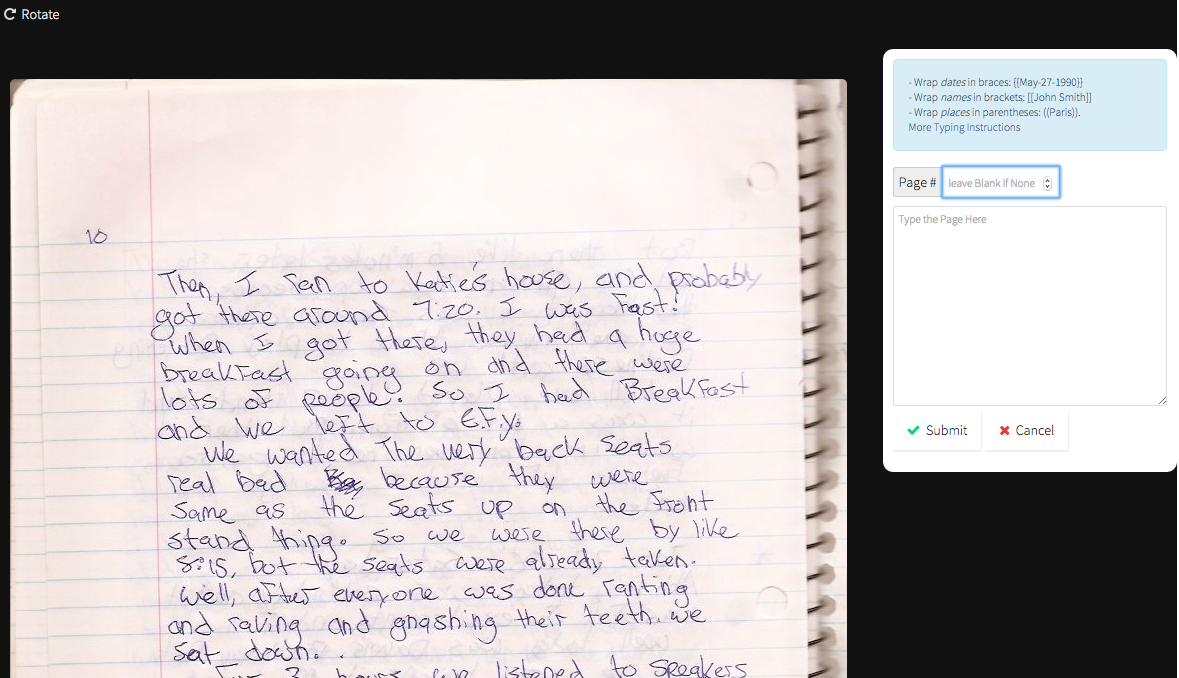 Rotate
- Wrap dates in braces: {{May-27-1990}}
- Wrap names in brackets: [[John Smith]]
- Wrap places in parentheses: ((Paris)).
More Typing Instructions
Page #
leave Blank If None
Type the Page Here
Submit
Cancel
10
Then, I ran to Katie's house, and probably
got there around 7:20. I was Fast!
When I got there, they had a huge
breakFast going on and there were
lots of people. So I had BreakFast
and we left to E.F.y.
We wanted The very back Seats
real bad because they were
Same as the Seats up on the Front
stand thing. So we were there by like
8:15, but the seats were already taken.
Well, after everyone was done ranting
and raving and gnashing their teeth. we
Sat down.
For 3 hours we listened to Speakers